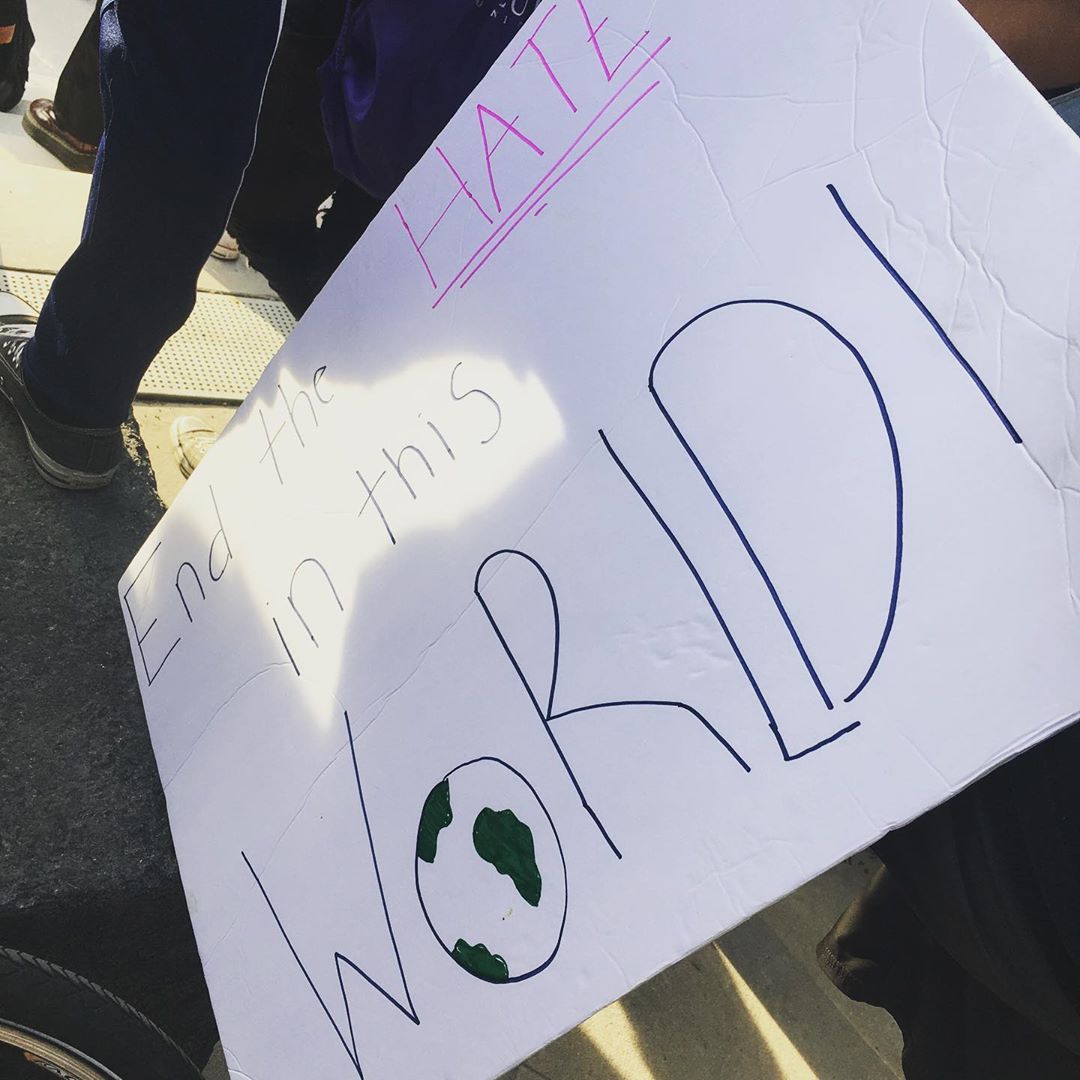 End the HATE
in this
WORLD!